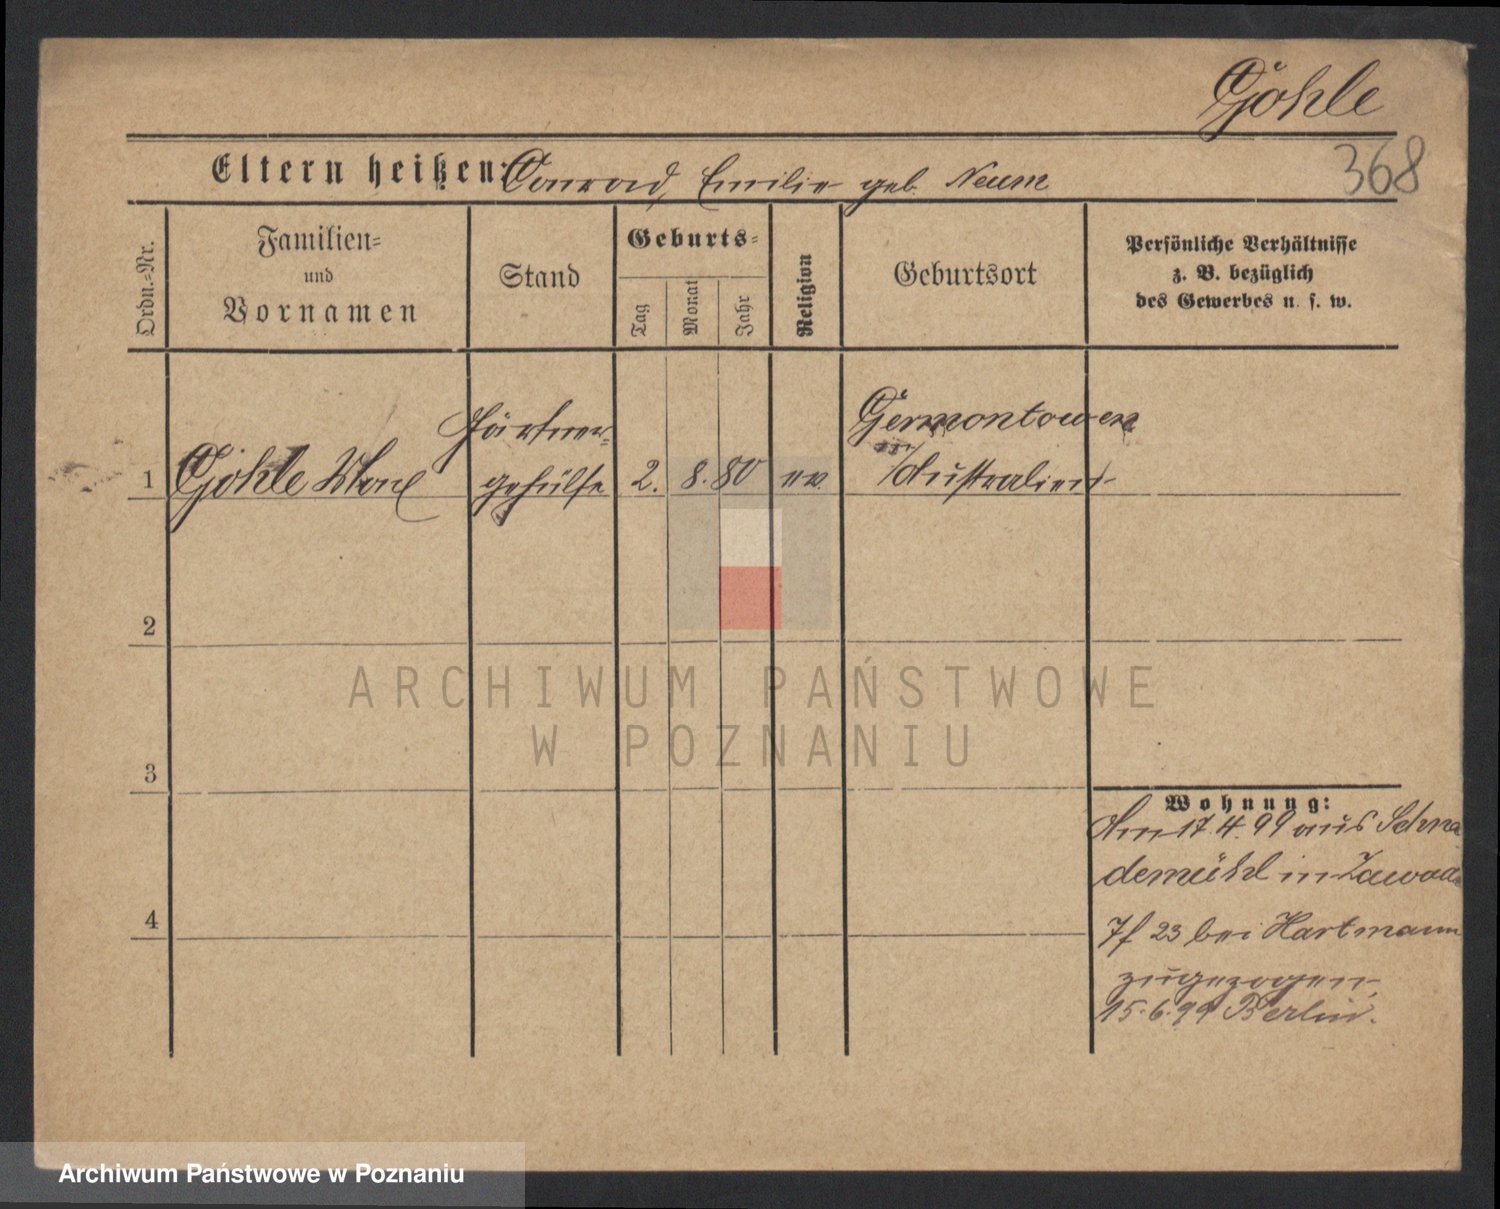 Göhle
368
Eltern heißen: Conrad, Emilie geb. Neum
Ordn.=Nr.
Familien=
und
Vornamen
Stand
Geburts=
Tag
Monat
Jahr
Religion
Geburtsort
Persönliche Verhältnisse
z. B. bezüglich
des Gewerbes u. s. w.
Gärtner=
Germontowen
1 Göhle gehülfe 2. 8. 80 ev. Australien
2
ARCHIWUM PAŃSTWOWE
W POZNANIU
3
Wohnung:
Am 17.4.99 aus Schnei
demühl in Zawade
4
23 bei Hartmann
zugezogen.
15.6.99 Berlin.
Archiwum Państwowe w Poznaniu